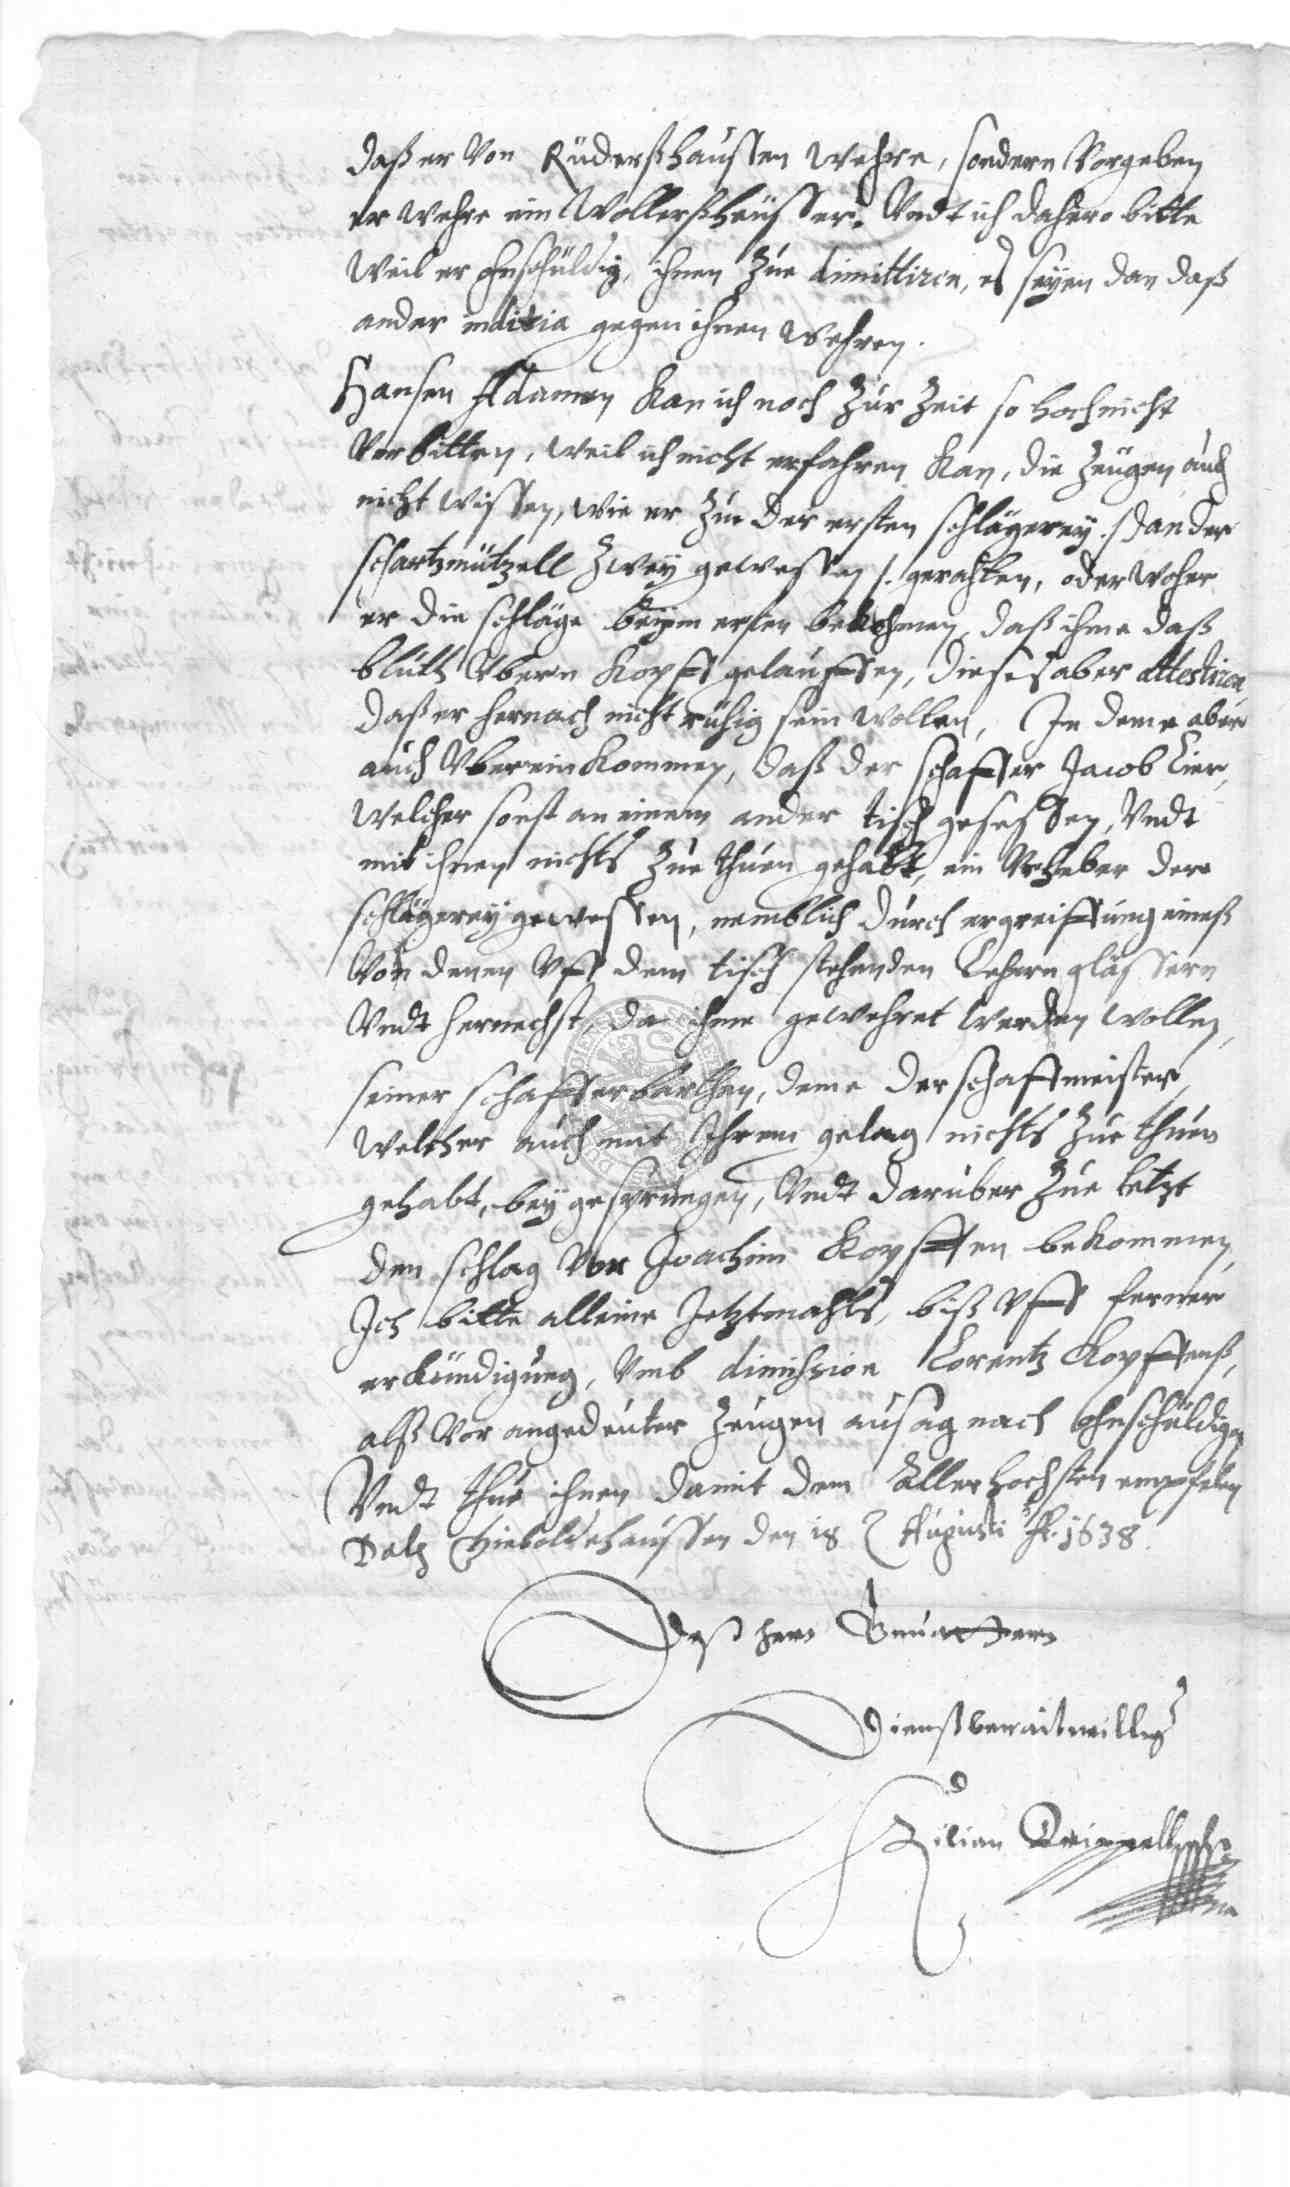 daß er Von Rüderßhaussen wehre, sondern Vorgeben
er wehre ein Wollerßheüsser. Vndt ich dahero bitte
weil er ohnschüldig, ihnen zue dimittiren, es seyen dan daß
ander inditia gegen ihnen wehren.
Hansen Adamen kan ich noch zur Zeit so hoch nicht
Vorbitten, weil ich nicht erfahren kan, die Zeügen auch
nicht wissen, wie er zu der ersten schlägerey /: dan der
schartzmützell zwey gewessen :/ gerahten, oder woher
er die schläge beym ersten bekohmen, daß ihme daß
blüth Vbern Kopff gelauffen, dieses aber attestiren,
daß er hernach nicht rühig sein wollen, In deme aber
auch Vberein kommen, daß der schaffer Jacob Lier,
welcher sonst an einem ander tisch gesessen, Vndt
mit ihnen nichts zue thuen gehabt, ein Vrheber der
schlägerey gewessen, nemblich durch ergreiffung eineß
Von denen Vff dem tisch stehenden Lehren glässern
Vndt hernechst, da ihme gewehret werden wollen,
seiner schaffer barthen, deme der schaffmeister,
welcher auch mit Ihrem gelag nichts zue thuen
gehabt, bey gesprungen, Vndt darüber zue letzt
den schlag Von Joachim Kopffen bekommen,
Ich bitte alleine Jetztmahls, biß Vff ferner
erkündigung, Vmb dimission Lorentz Kopffenß,
alß Vor angedeuter Zeugen ausag nach ohnschüldigen
Vndt thue ihnen damit dem Allerhochsten empfelen
Datz Gieboldehaussen den 18 Augusti A. 1638.
Deß hern Geuattern
Dienstberaitwillig
Kilian